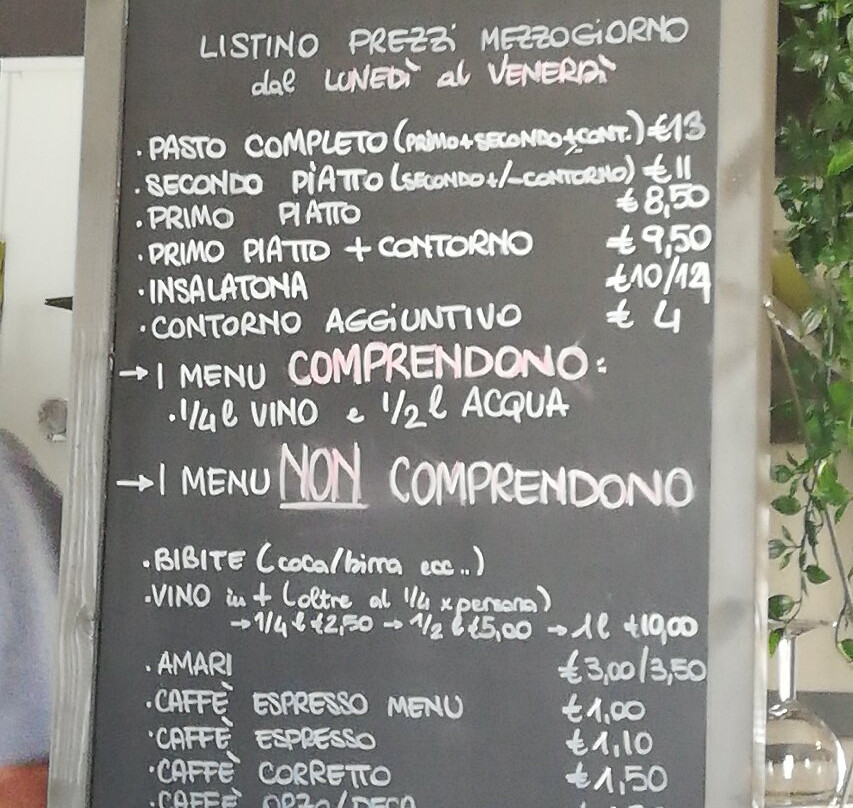 LISTINO PREZZi MEZZOGiORNO
dal LUNEDÌ al VENERDÌ
. PASTO COMPLETO (PRIMO+SECONDO+CONT.) €13
. SECONDO PIATTO (SECONDO+/-CONTORNO) € 11
. PRIMO PIATTO € 8,50
. PRIMO PIATTO + CONTORNO € 9,50
. INSALATONA €10/12
. CONTORNO AGGIUNTIVO € 4
→ I MENU COMPRENDONO:
. 1/4 l VINO e 1/2 l ACQUA
→ I MENU NON COMPRENDONO
. BIBITE (coca/birra ecc..)
. VINO in + (oltre al 1/4 x persona)
→ 1/4 l €2,50 → 1/2 l €5,00 → 1l €10,00
. AMARI €3,00/3,50
. CAFFÈ ESPRESSO MENU €1,00
. CAFFÈ ESPRESSO €1,10
. CAFFÈ CORRETTO €1,50
. CAFFÈ ORZO/DECA